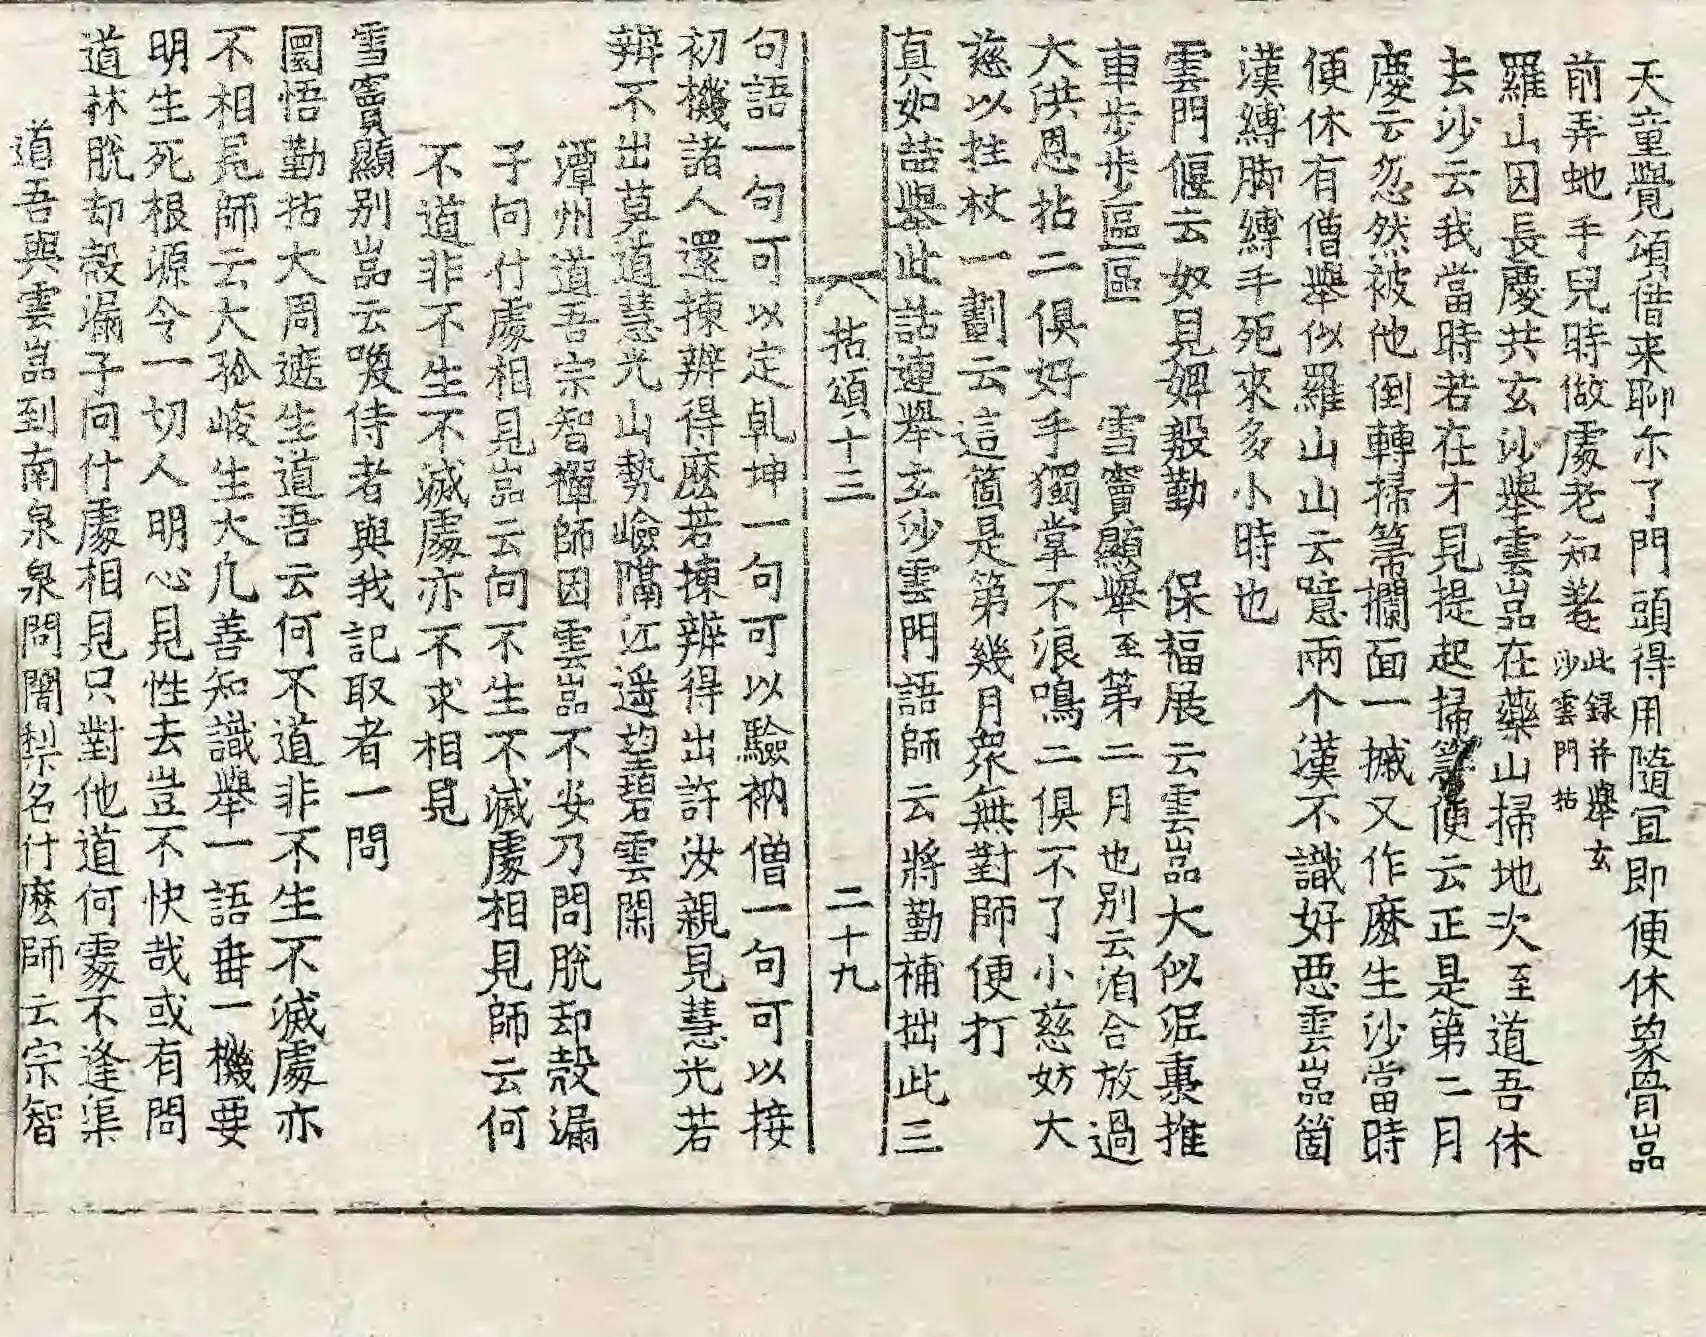 天童覺頌借来聊尓了門頭得用隨冝即便休象骨嵓
前弄虵手兒時做處老知羞此録并舉玄沙雲門拈
羅山因長慶共玄沙舉雲嵓在藥山掃地次至道吾休
去沙云我當時若在才見提起掃箒便云正是第二月
慶云忽然被他倒轉掃箒攔面一摵又作麽生沙當時
便休有僧舉似羅山山云噫兩个漢不識好惡雲嵓箇
漢縛脚縛手死來多小時也
雲門偃云奴見婢殷勤　保福展云雲嵓大似泥裏推
車步步區區　雪竇顯舉至第二月也别云洎合放過
大洪恩拈二俱好手獨掌不浪鳴二俱不了小慈妨大
慈以拄杖一劃云這箇是第幾月衆無對師便打
真如喆舉此話連舉玄沙雲門語師云將勤補拙此三
拈頌十三　二十九
句語一句可以定乹坤一句可以驗衲僧一句可以接
初機諸人還揀辨得麽若揀辨得出許汝親見慧光若
辨不出莫道慧光山勢嶮隔江遥望碧雲閑
潭州道吾宗智禪師因雲嵓不安乃問脫却殼漏
子向什處相見嵓云向不生不滅處相見師云何
不道非不生不滅處亦不求相見
雪竇顯别嵓云喚侍者與我記取者一問
圜悟勤拈大周遮生道吾云何不道非不生不滅處亦
不相見師云大殺峻生大凢善知識舉一語垂一機要
明生死根源令一切人明心見性去豈不快哉或有問
道林脫却殼漏子向什處相見只對他道何處不逢渠
道吾與雲嵓到南泉泉問闍梨名什麽師云宗智